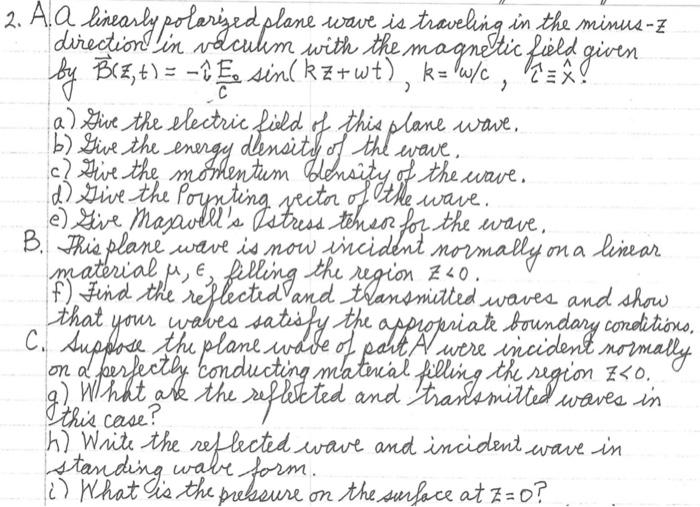 2. A. A linearly polarized plane wave is traveling in the minus-z
direction in vacuum with the magnetic field given
by B⃗(z,t) = -î E₀/c sin(kz+wt), k = w/c, î ≡ x̂.
a) Give the electric field of this plane wave.
b) Give the energy density of the wave.
c) Give the momentum density of the wave.
d) Give the Poynting vector of the wave.
e) Give Maxwell's stress tensor for the wave.
B. This plane wave is now incident normally on a linear
material μ, ε, filling the region z<0.
f) Find the reflected and transmitted waves and show
that your waves satisfy the appropriate boundary conditions.
C. Suppose the plane wave of part A were incident normally
on a perfectly conducting material filling the region z<0.
g) What are the reflected and transmitted waves in
this case?
h) Write the reflected wave and incident wave in
standing wave form.
i) What is the pressure on the surface at z=0?